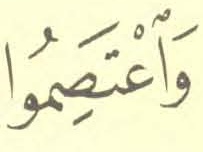 وَٱعْتَصِمُوا